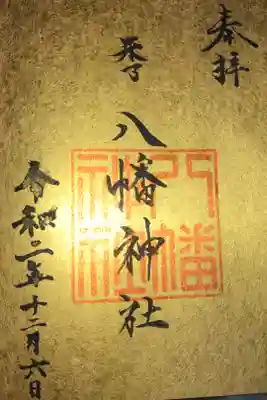 奉拝
八幡神社
八幡
神社
令和二年十二月六日